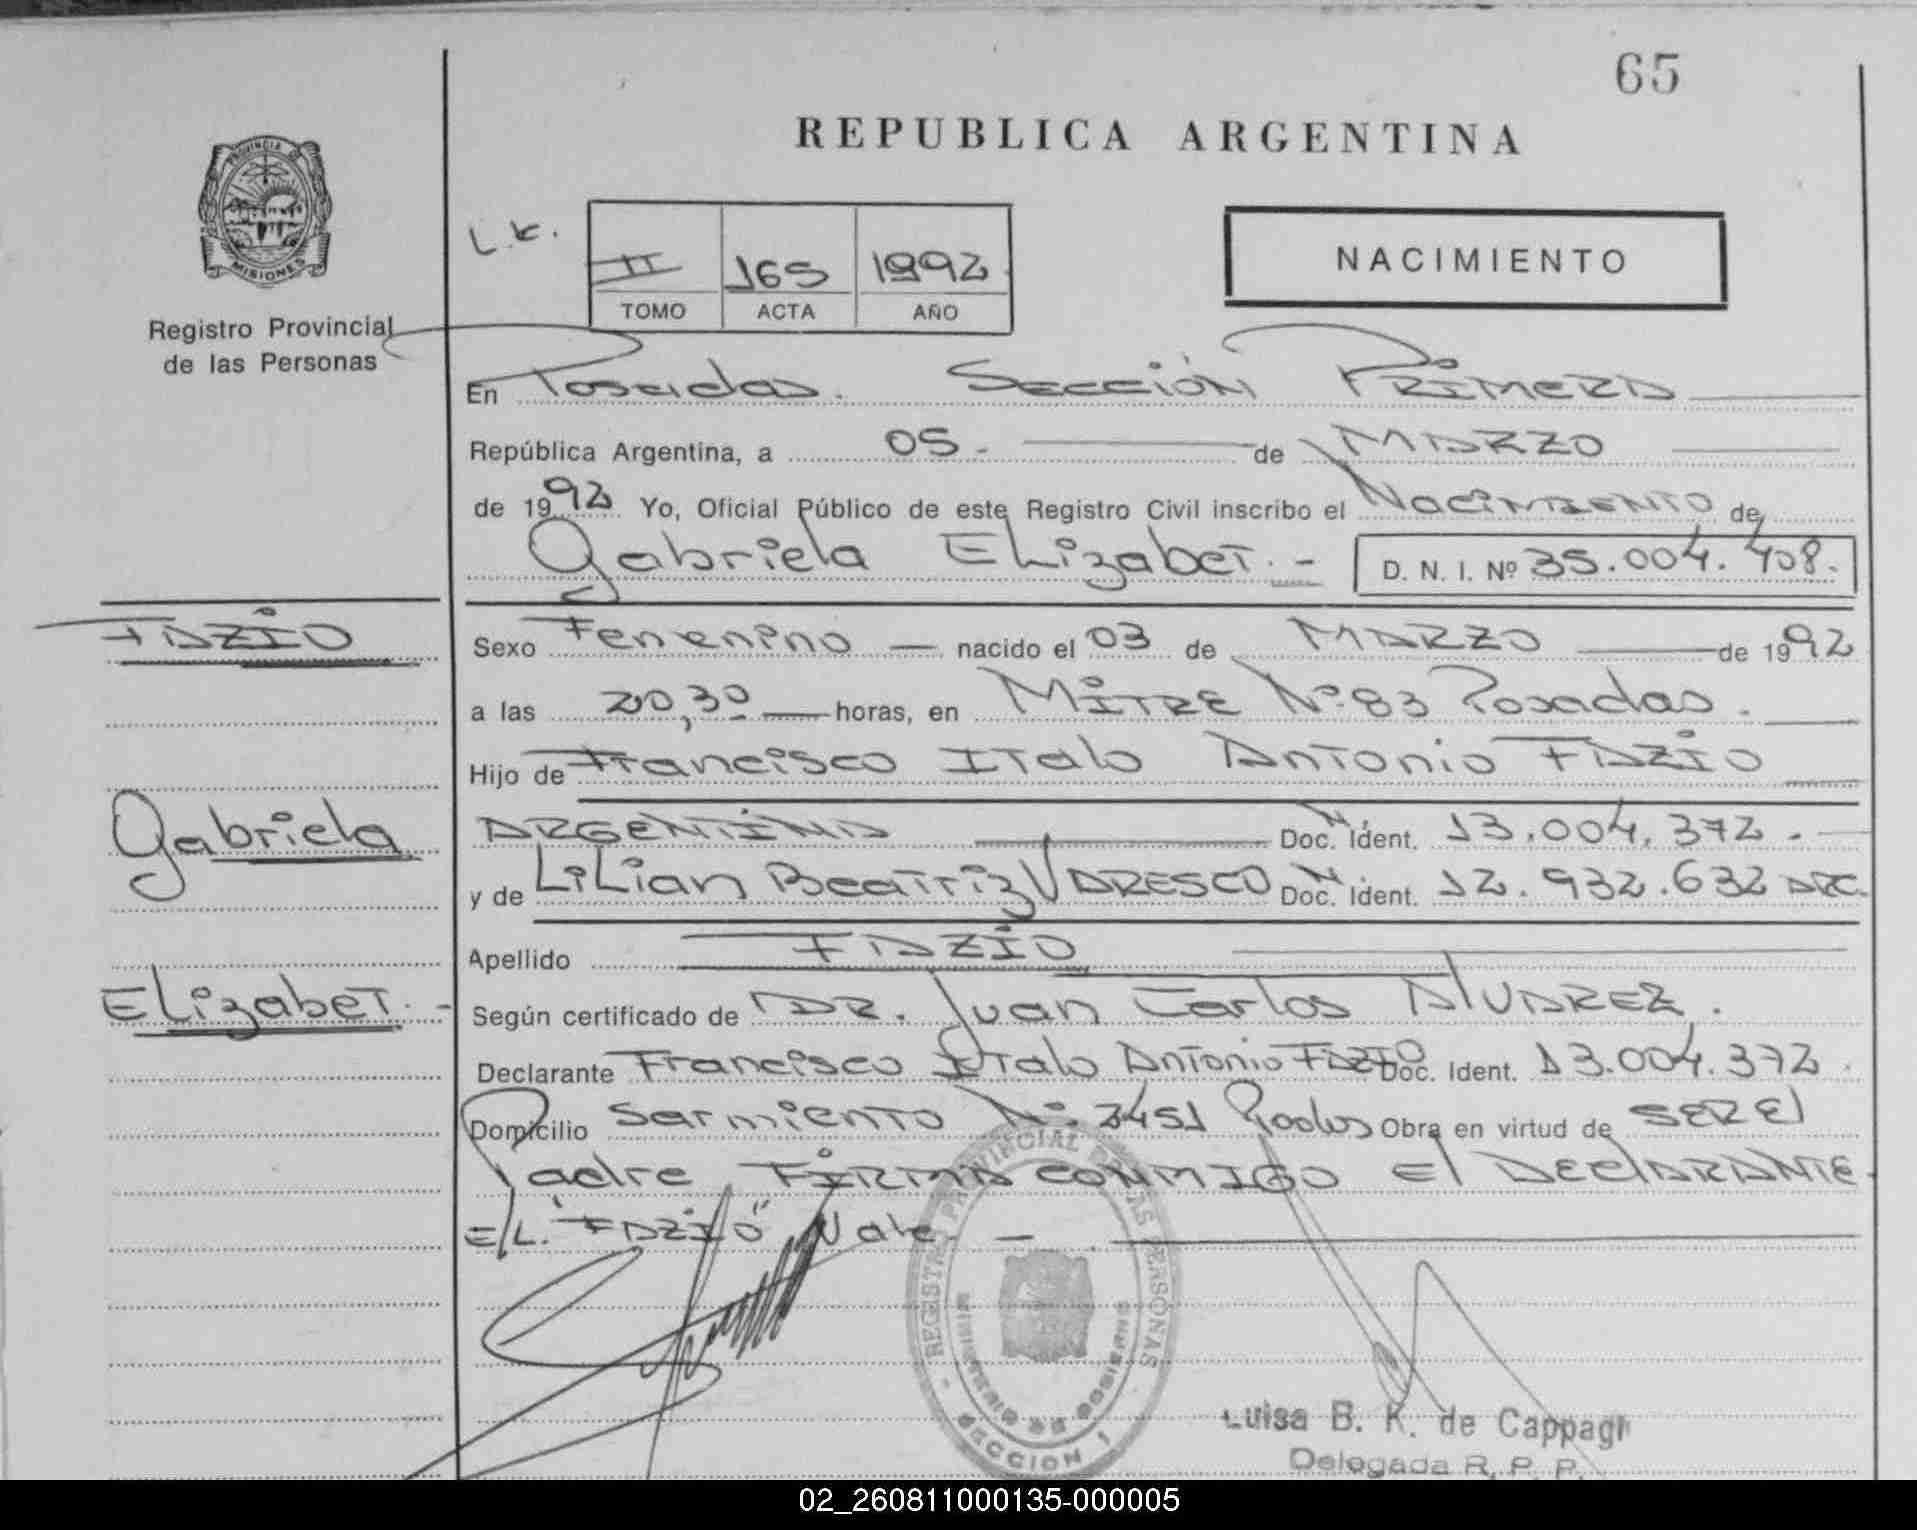 65
REPUBLICA ARGENTINA
PROVINCIA DE
MISIONES
Registro Provincial
de las Personas
L.K.
II 165 1992
TOMO ACTA AÑO
NACIMIENTO
En Posadas. Sección Primera
República Argentina, a 05.- de Marzo
de 1992 Yo, Oficial Público de este Registro Civil inscribo el Nacimiento de
Gabriela Elizabet.- D. N. I. Nº 35.004.408.
FAZIO
Sexo Femenino — nacido el 03 de Marzo de 1992
a las 20,30 — horas, en Mitre Nº 83 Posadas.
Hijo de Francisco Italo Antonio Fazio
Gabriela
Argentina Doc. N. Ident. 13.004.372.-
y de Lilian Beatriz Varesco Doc. N. Ident. 12.932.632 ARG.
Apellido FAZIO
Elizabet.-
Según certificado de DR. Juan Carlos Alvarez.
Declarante Francisco Italo Antonio Fazio Doc. Ident. 13.004.372.
Domicilio Sarmiento Nº 2451 Obra en virtud de ser el
Padre Firma conmigo el declarante
E/L. "FAZIO" Vale. —
REGISTRO PROVINCIAL DE LAS PERSONAS
MINISTERIO DE GOBIERNO
SECCION 1
Luisa B. K. de Cappagli
Delegada R. P. P.
02_260811000135-000005